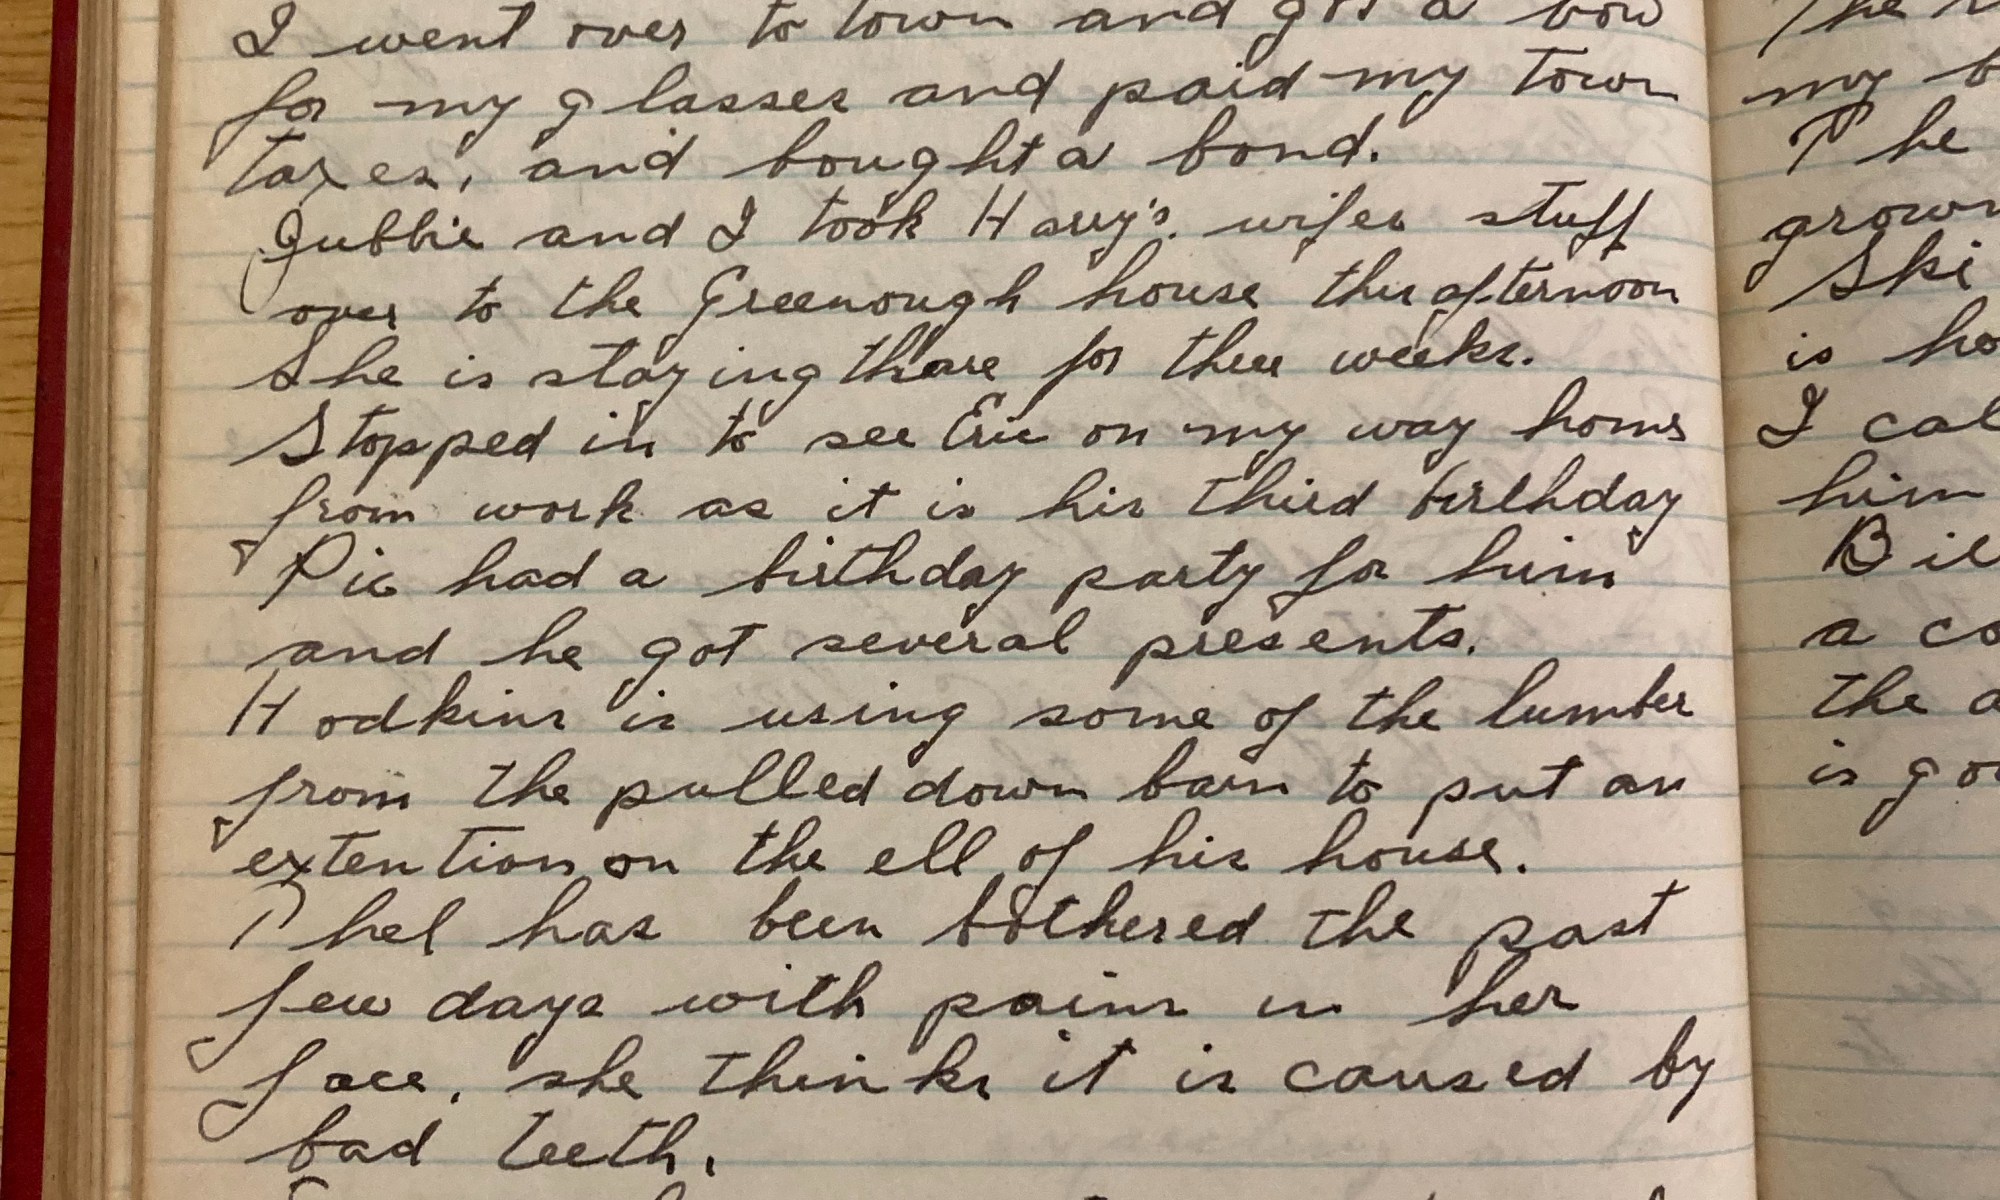 I went over to town and got a bow
for my glasses and paid my town
taxes, and bought a bond.
Jubbie and I took Harry's. wifes stuff
over to the Greenough house this afternoon
She is staying thare for three weeks.
Stopped in to see Eric on my way home
from work as it is his third birthday
Pic had a birthday party for him
and he got several presents.
Hodkins is using some of the lumber
from the pulled down barn to put an
extention on the ell of his house.
Phel has been bothered the past
few days with pains in her
face, she thinks it is caused by
bad teeth.
The
my
The
grown
Ski
is
I
him
a
the
is